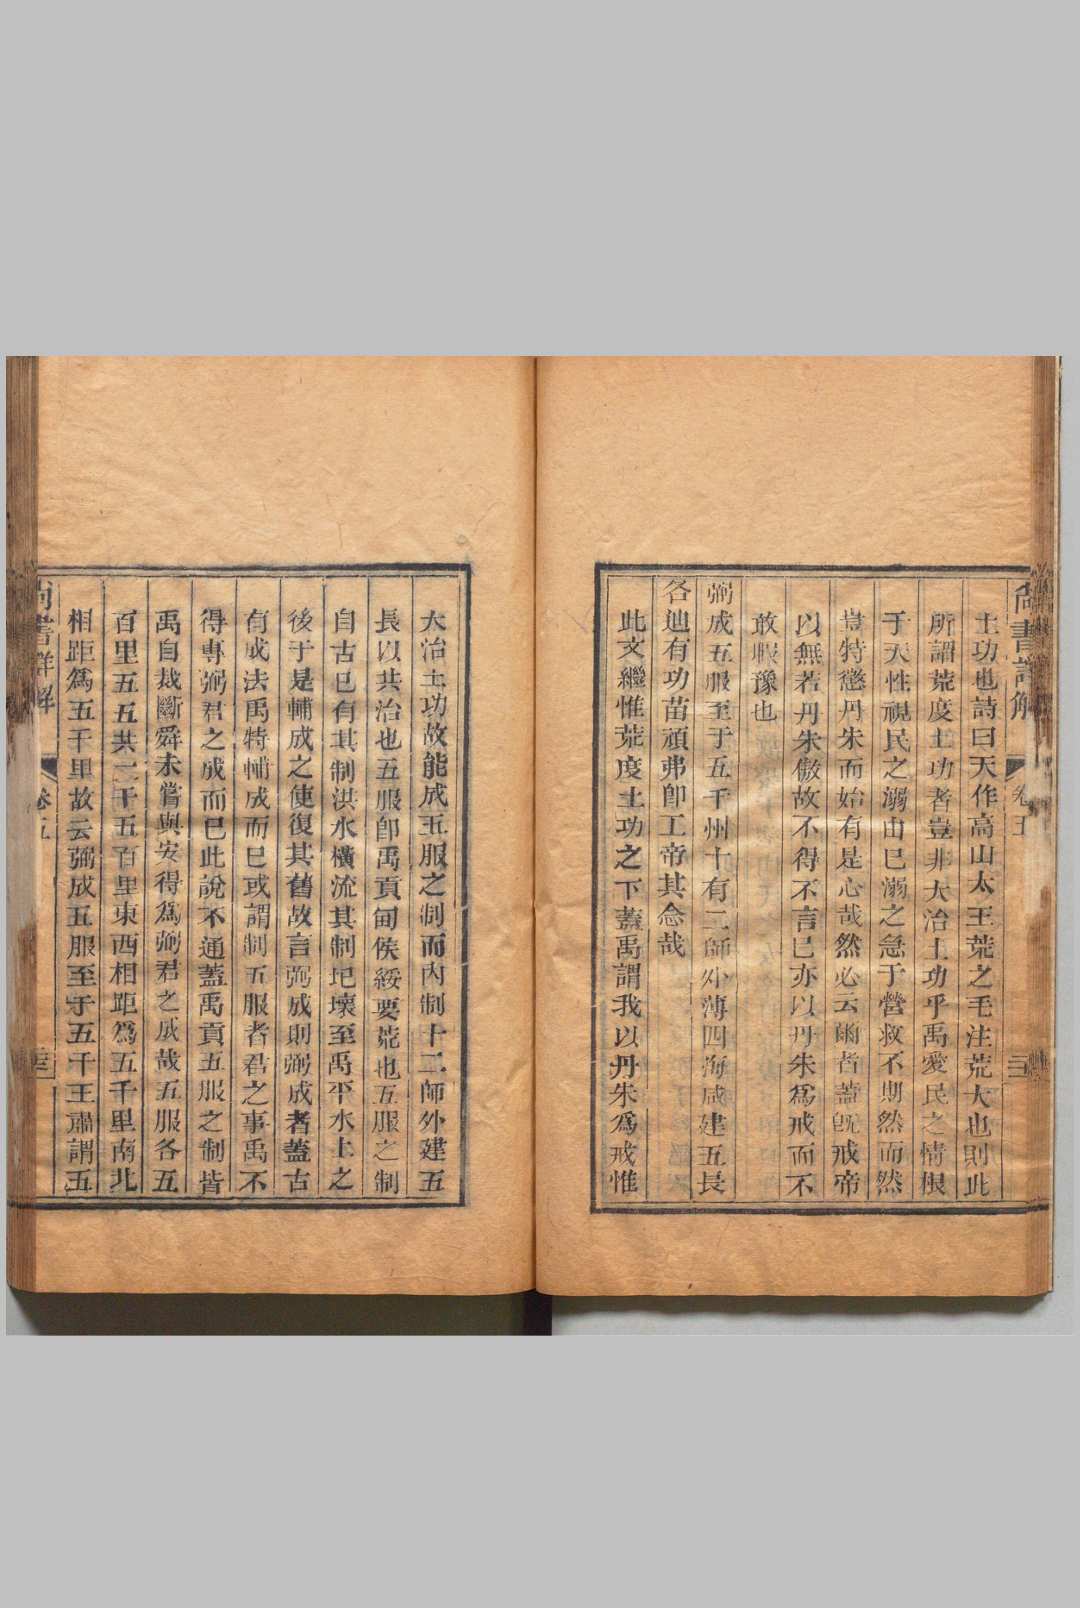 尚書詳解
卷五
土功也詩曰天作高山太王荒之毛注荒大也則此
所謂荒度土功者豈非大治土功乎禹愛民之情根
于天性視民之溺由已溺之急于營救不期然而然
豈特懲丹朱而始有是心哉然必云爾者蓋旣戒帝
以無若丹朱傲故不得不言已亦以丹朱爲戒而不
敢暇豫也
弼成五服至于五千州十有二師外薄四海咸建五長
各迪有功苗頑弗卽工帝其念哉
此文繼惟荒度土功之下蓋禹謂我以丹朱爲戒惟
大治土功故能成五服之制而內制十二師外建五
長以共治也五服卽禹貢甸侯綏要荒也五服之制
自古已有其制洪水橫流其制圮壞至禹平水土之
後于是輔成之使復其舊故言弼成則弼成者蓋古
有成法禹特輔成而已或謂制五服者君之事禹不
得專弼君之成而已此說不通蓋禹貢五服之制皆
禹自裁斷舜未嘗與安得爲弼君之成哉五服各五
百里五五共二千五百里東西相距爲五千里南北
相距爲五千里故云弼成五服至于五千王肅謂五
尚書詳解
卷五